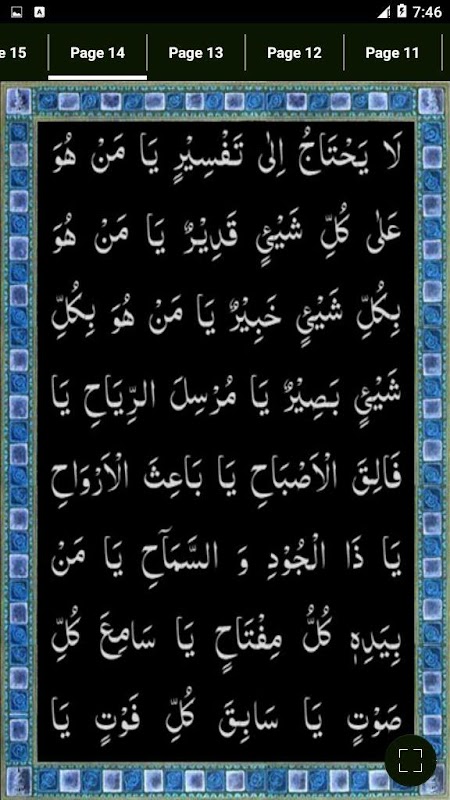 7:46
Page 15 Page 14 Page 13 Page 12 Page 11
لَا يَحْتَاجُ اِلٰى تَفْسِيْرٍ يَا مَنْ هُوَ
عَلٰى كُلِّ شَيْئٍ قَدِيْرٌ يَا مَنْ هُوَ
بِكُلِّ شَيْئٍ خَبِيْرٌ يَا مَنْ هُوَ بِكُلِّ
شَيْئٍ بَصِيْرٌ يَا مُرْسِلَ الرِّيَاحِ يَا
فَالِقَ الْاَصْبَاحِ يَا بَاعِثَ الْاَرْوَاحِ
يَا ذَا الْجُوْدِ وَ السَّمَآحِ يَا مَنْ
بِيَدِهٖ كُلُّ مِفْتَاحٍ يَا سَامِعَ كُلِّ
صَوْتٍ يَا سَابِقَ كُلِّ فَوْتٍ يَا